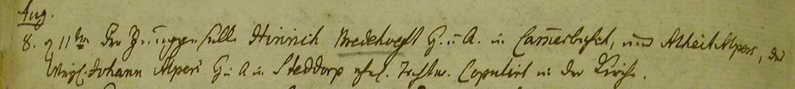 Aug.
8. 11 Uhr der Junggeselle Hinrich Bredehoeft G. u. A. in Cammerbusch, und Alheit Alpers, des
Weyl. Johann Alpers G. u. A. in Steddorp ehel. Tochter. Copulirt in der Kirche.